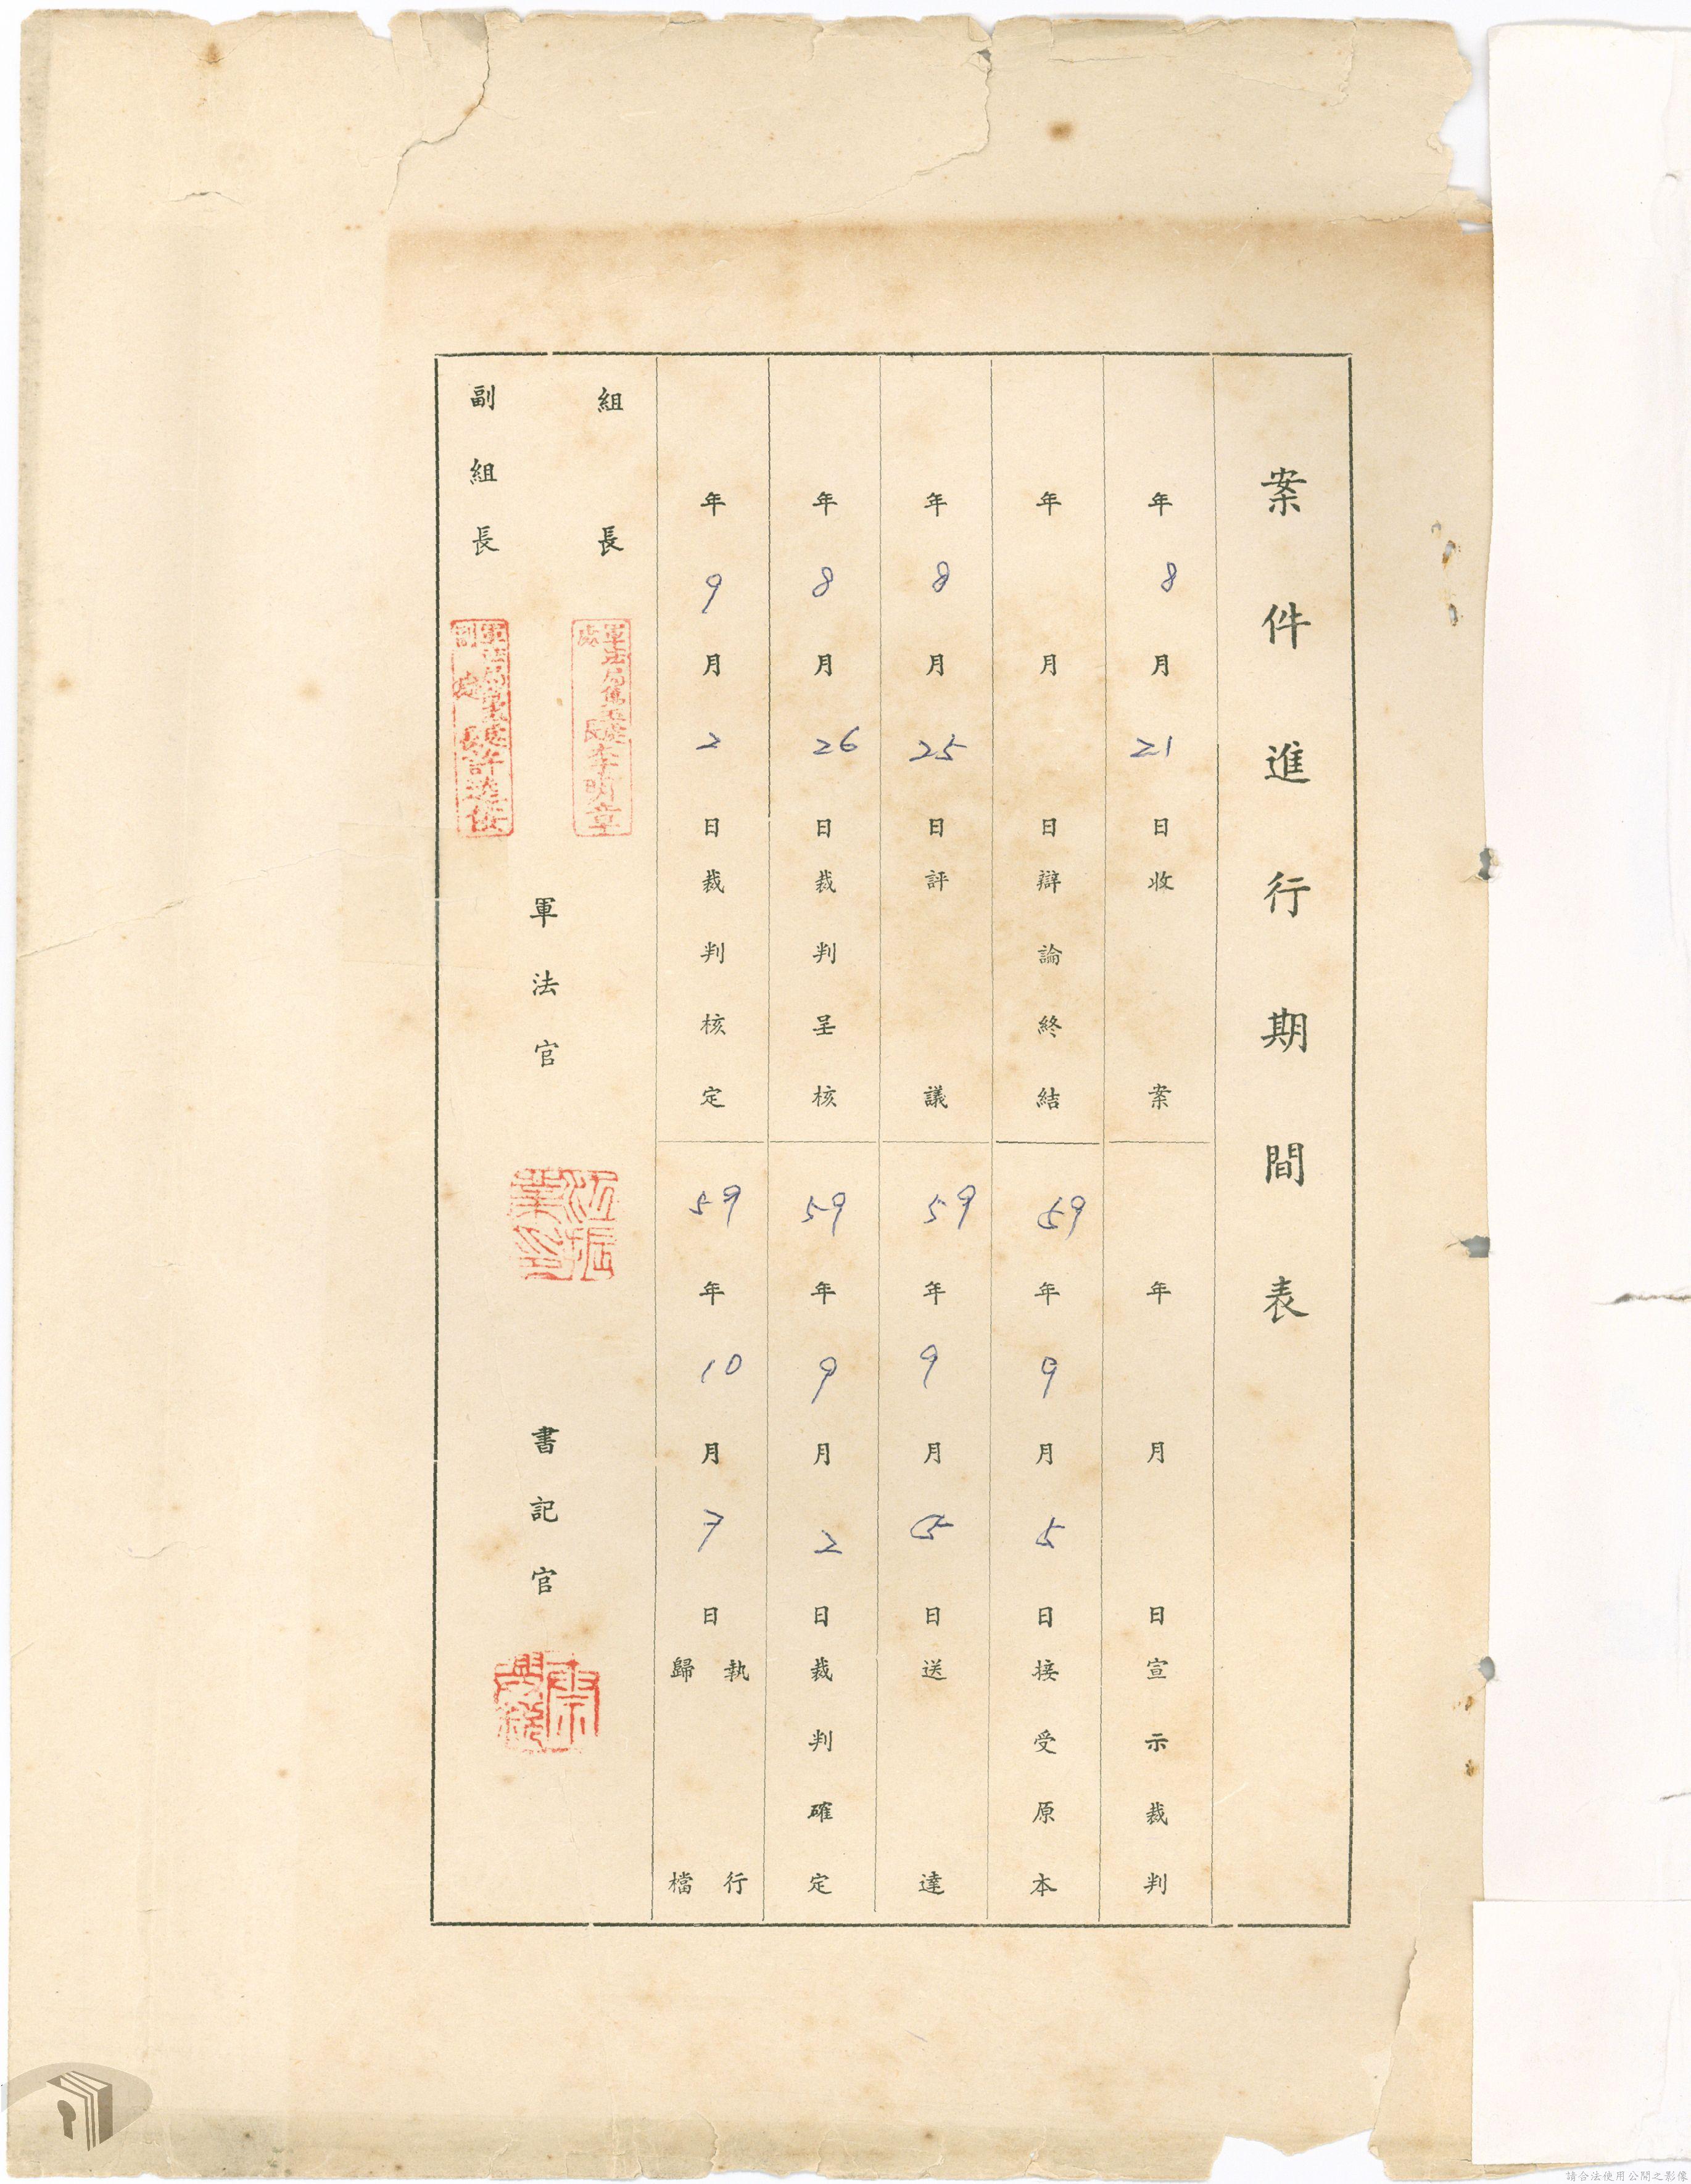 案件進行期間表
年8月21日收案
年月日宣示裁判
年月日辯論終結
59年9月5日接受原本
年8月25日評議
59年9月5日送達
年8月26日裁判呈核
59年9月2日裁判確定
年9月2日裁判核定
59年10月7日執行
歸檔
組長
李明章
副組長
軍法官
書記官
請合法使用公開之影像